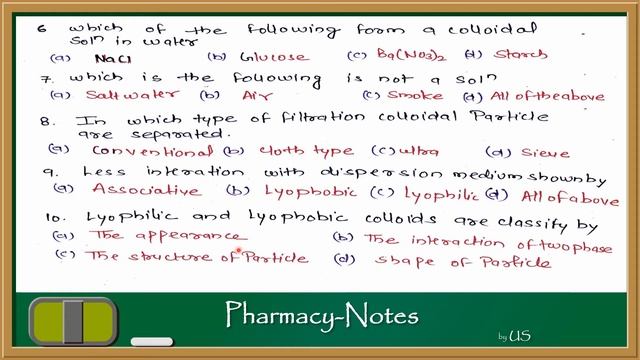 6 which of the following form a colloidal
Solⁿ in water
(a) NaCl (b) Glucose (c) Ba(NO3)2 (d) Starch
7. which is the following is not a solⁿ
(a) Salt water (b) Air (c) Smoke (d) All of the above
8. In which type of filtration colloidal Particle
are separated.
(a) Conventional (b) Cloth type (c) ultra (d) Sieve
9. Less interation with dispersion medium shown by
(a) Associative (b) Lyophobic (c) Lyophilic (d) All of above
10. Lyophilic and Lyophobic colloids are classify by
(a) The appearance (b) The interaction of two phase
(c) The structure of Particle (d) shape of Particle
Pharmacy-Notes
by US